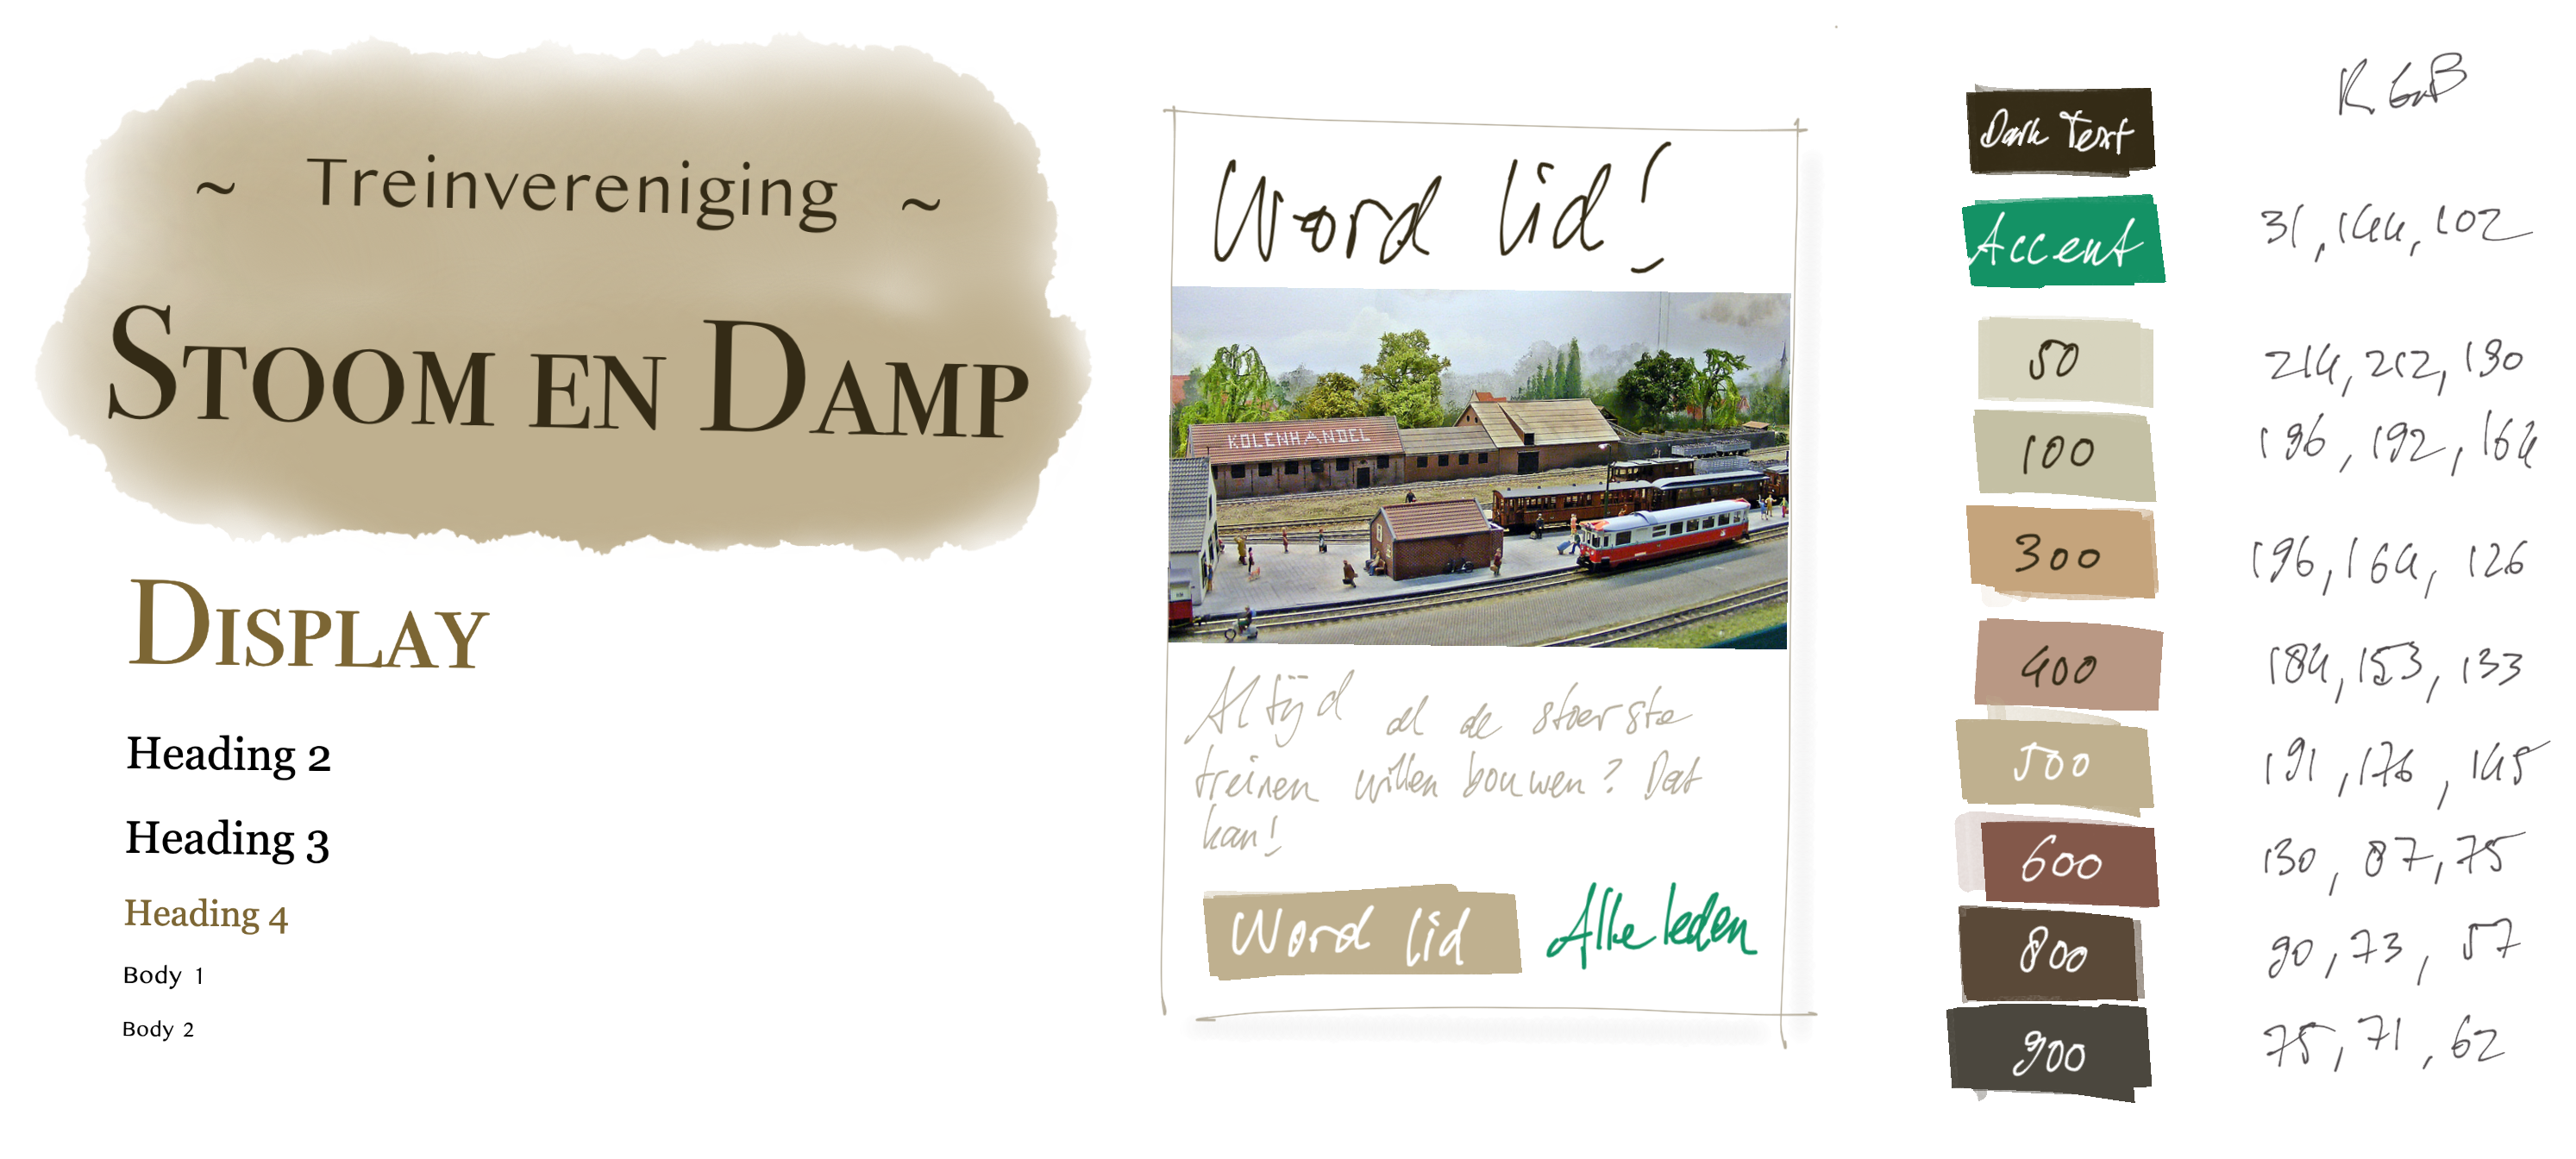 ~ Treinvereniging ~
STOOM EN DAMP
DISPLAY
Heading 2
Heading 3
Heading 4
Body 1
Body 2
Word lid!
KOLENHANDEL
Altijd al de stoerste
treinen willen bouwen? Dat
kan!
Word lid
Alle leden
RGB
Dark Text
Accent 31, 144, 102
50 214, 212, 190
100 196, 192, 164
300 196, 164, 126
400 184, 153, 133
500 191, 176, 145
600 130, 87, 75
800 90, 73, 57
900 75, 71, 62